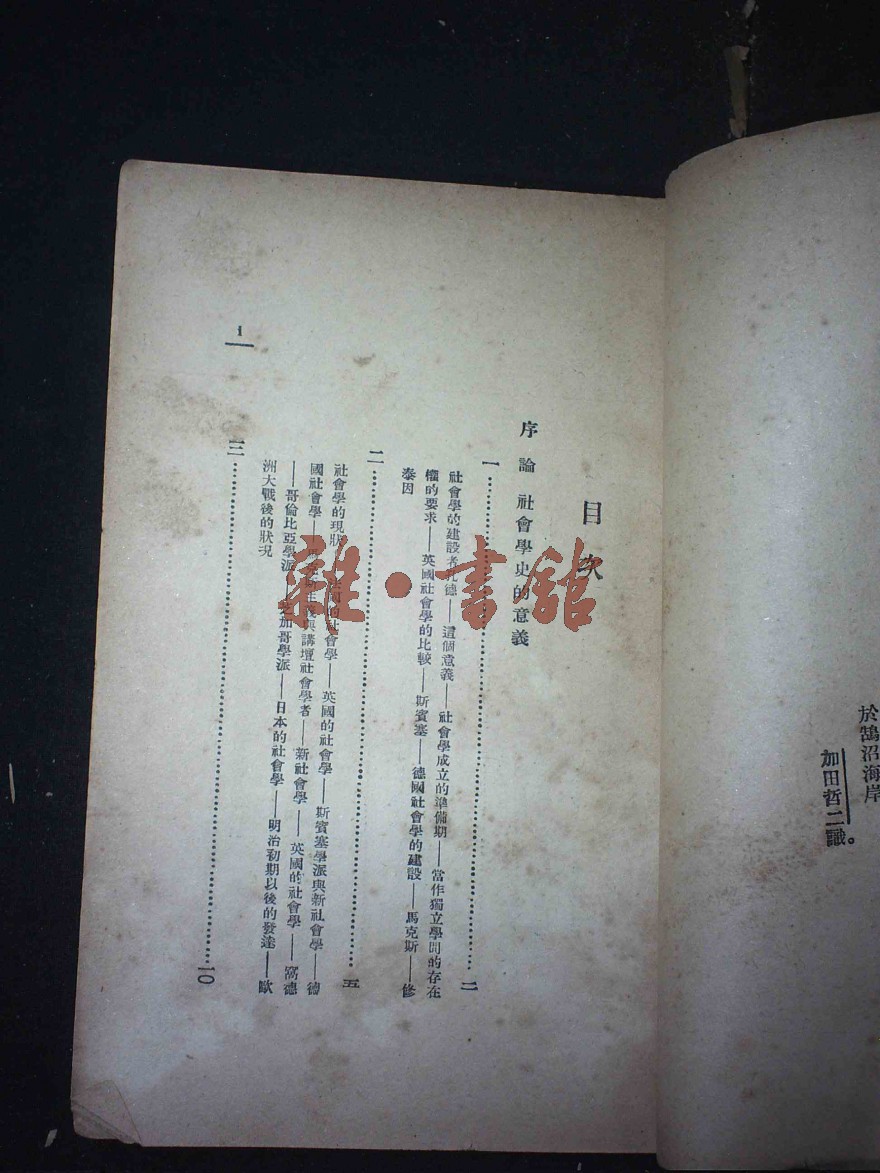 於鵠沼海岸
加田哲二識。
目次
序論 社會學史的意義
一……二
社會學的建設者孔德——這個意義——社會學成立的準備期——當作獨立學問的存在
權的要求——英國社會學的比較——斯賓塞——德國社會學的建設——馬克斯——修
泰因
二……五
社會學的現狀——法國的社會學——英國的社會學——斯賓塞學派與新社會學——德
國社會學——主義與講壇社會學者——新社會學——英國的社會學——窩德
——哥倫比亞學派——芝加哥學派——日本的社會學——明治初期以後的發達——歐
洲大戰後的狀况
三……一〇
1
雜·書館